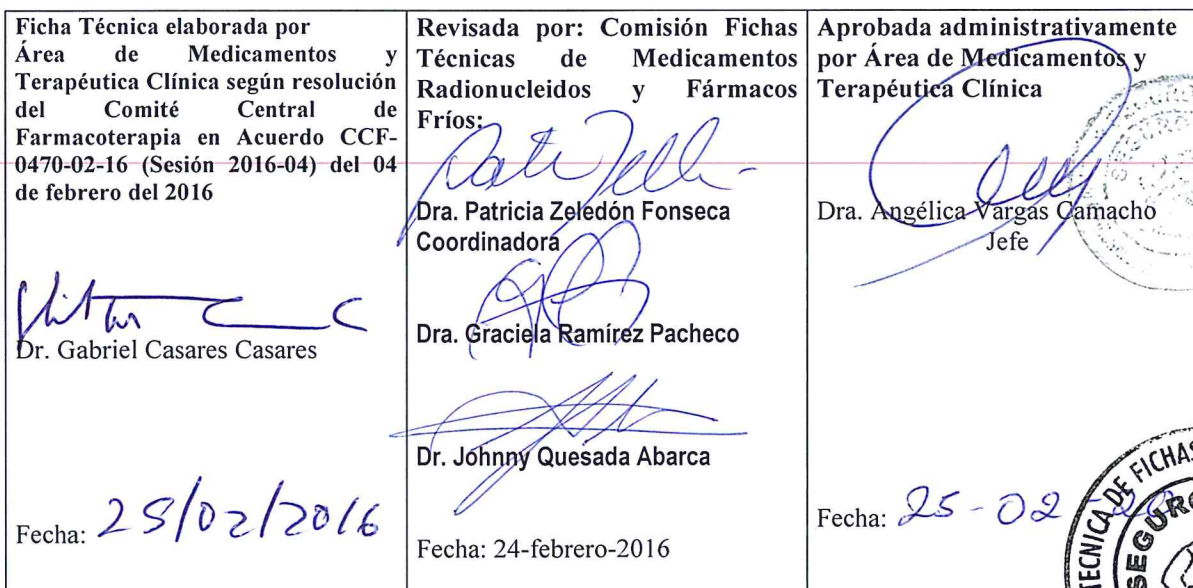 Ficha Técnica elaborada por
Área de Medicamentos y
Terapéutica Clínica según resolución
del Comité Central de
Farmacoterapia en Acuerdo CCF-
0470-02-16 (Sesión 2016-04) del 04
de febrero del 2016
Dr. Gabriel Casares Casares
Fecha: 25/02/2016
Revisada por: Comisión Fichas
Técnicas de Medicamentos
Radionucleidos y Fármacos
Fríos:
Dra. Patricia Zeledón Fonseca
Coordinadora
Dra. Graciela Ramírez Pacheco
Dr. Johnny Quesada Abarca
Fecha: 24-febrero-2016
Aprobada administrativamente
por Área de Medicamentos y
Terapéutica Clínica
Dra. Angélica Vargas Camacho
Jefe
Fecha: 25-02-20
TECNICA DE FICHAS
SEGURO